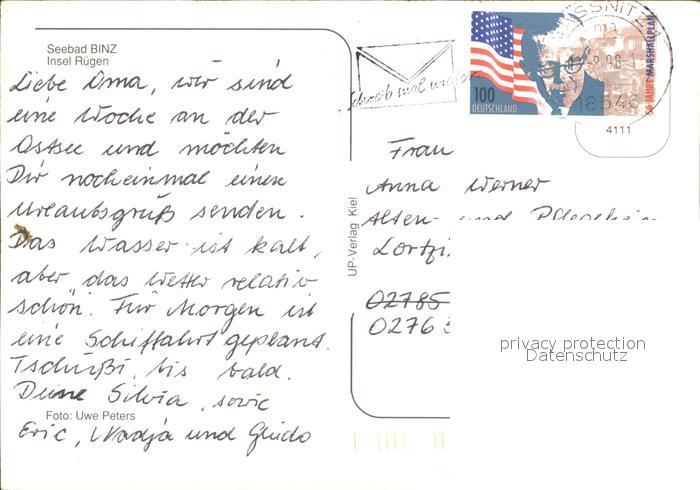 Seebad BINZ
Insel Rügen
Liebe Oma, wir sind
eine Woche an der
Ostsee und möchten
Dir nocheinmal einen
Urlaubsgruß senden.
Das Wasser ist kalt,
aber das Wetter relativ
schön. Für Morgen ist
eine Schiffahrt geplant.
Tschüßi, bis bald.
Deine Silvia, sowie
Foto: Uwe Peters
Eric, Nadja und Guido
UP-Verlag Kiel
Schreib mal wieder
100
DEUTSCHLAND
50 JAHRE MARSHALLPLAN
SASSNITZ
18546
4111
Frau
Anna Werner
Alten- und Pflegeheim
Lortzi
02785
0276
privacy protection
Datenschutz